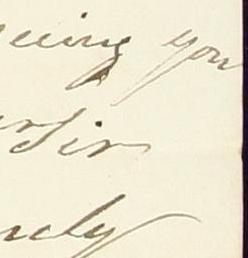 eeing you
r Sir
rely